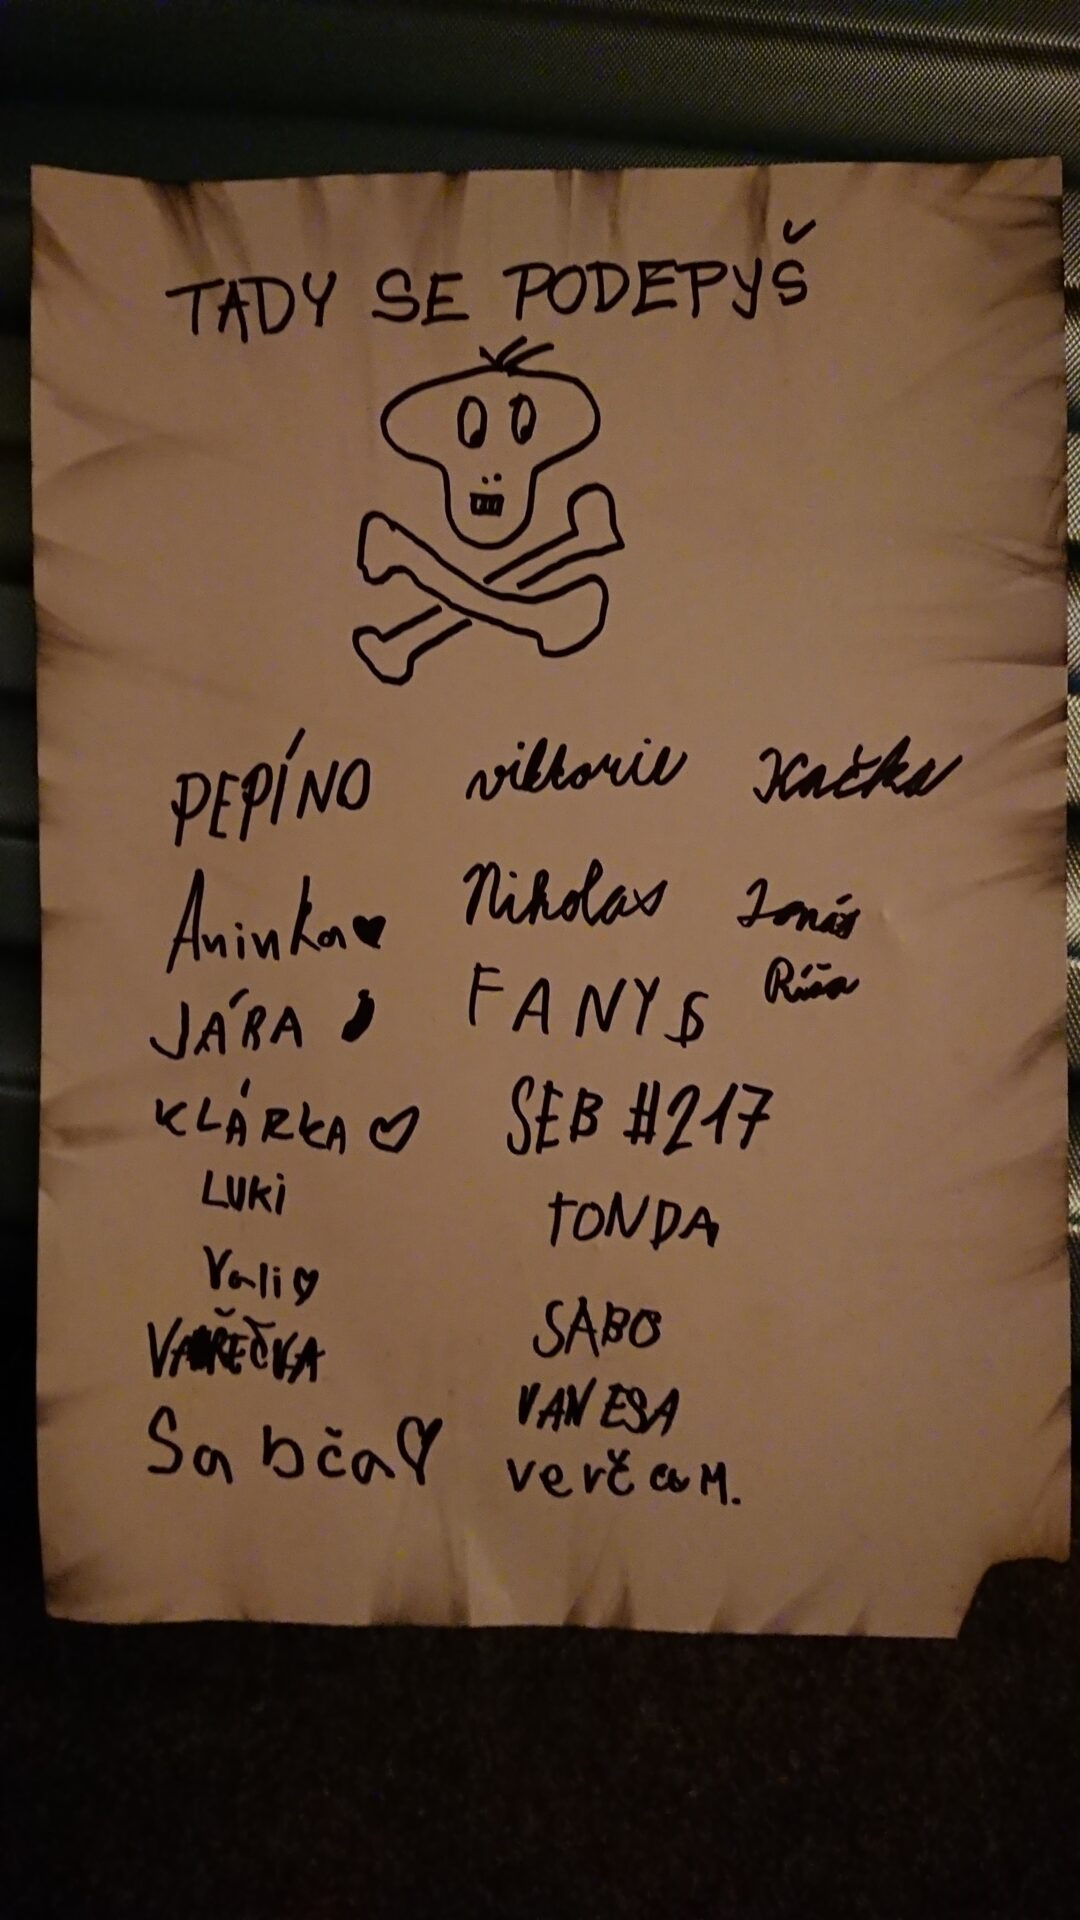 TADY SE PODEPYŠ
PEPÍNO viktorie Kačka
Aninka Nikolas Jonáš
JÁRA FANY$ Ríša
KLÁRKA SEB #217
LUKi TONDA
Vali SABO
VAŘEČKA VANESA
Sabča verča M.